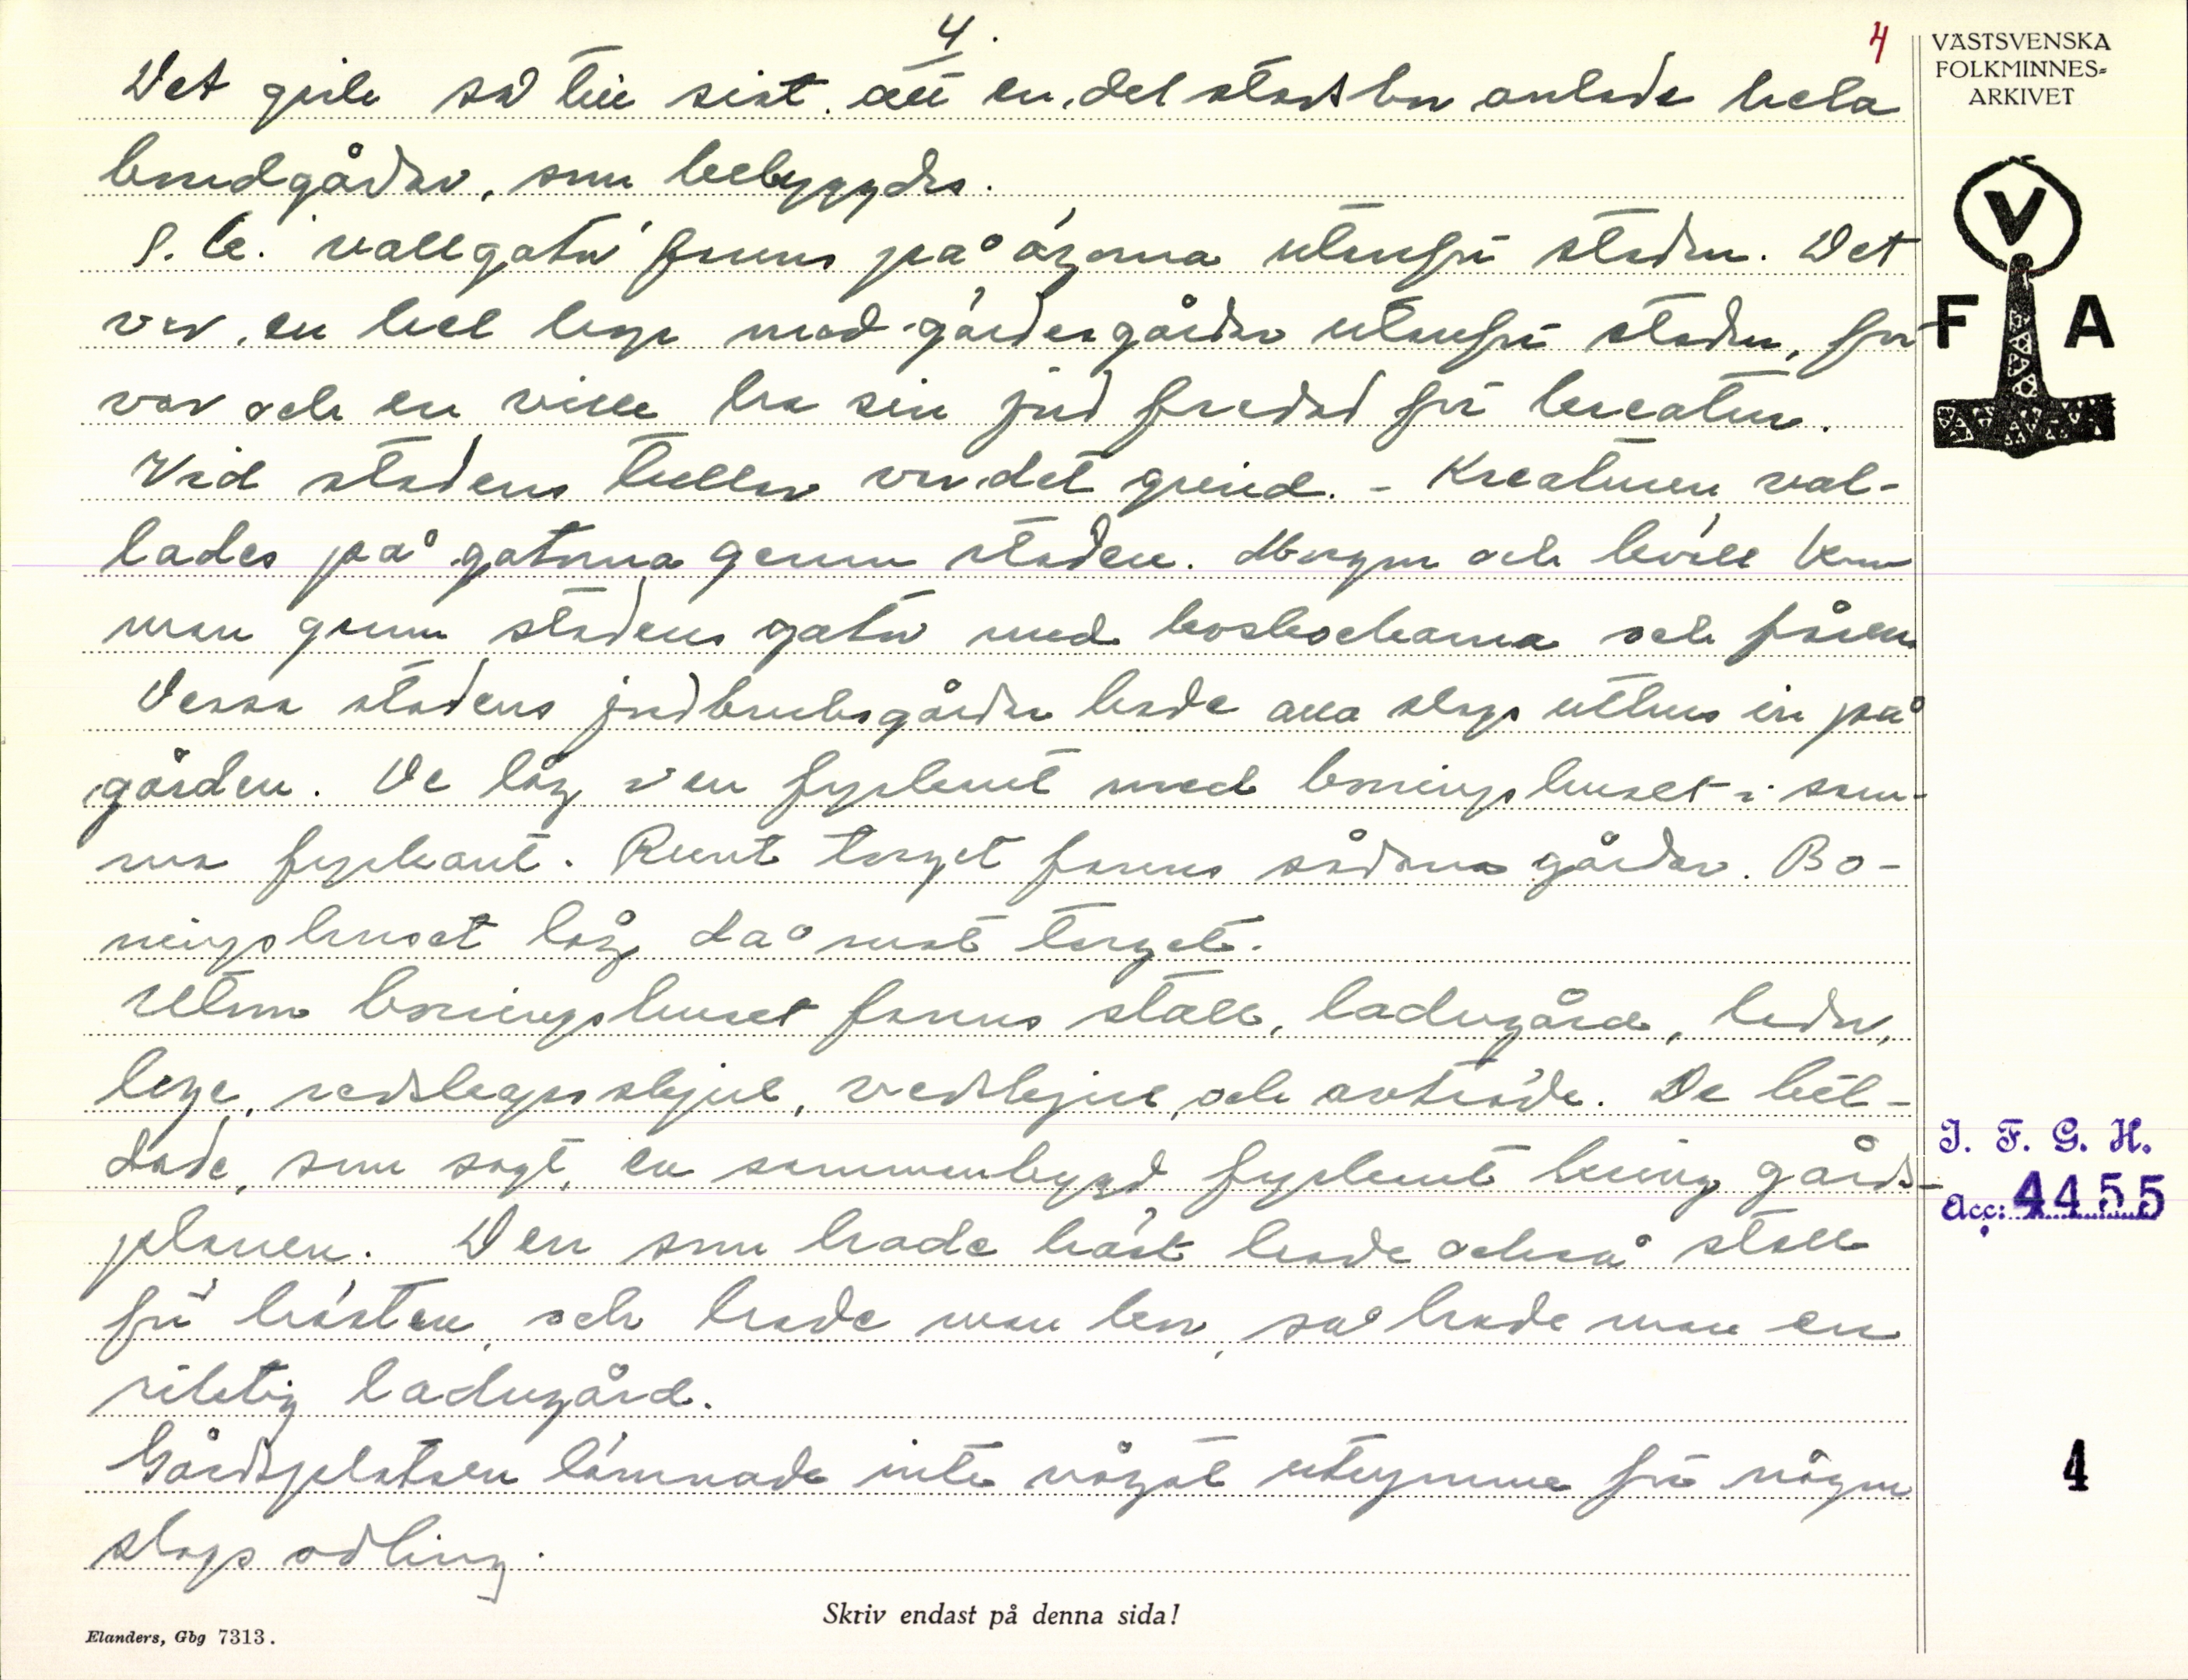 4.
4
VÄSTSVENSKA
FOLKMINNES=
ARKIVET
V
F A
Det gick så till sist att en del stadsbor anlade hela
bondgårdar, som bebyggdes.
S. k. vallgator funns på ägorna utanför staden. Det
var en hel hop med gärdesgårdar utanför staden, for
var och en ville ha sin jord fredad för kreatur.
Vid stadens tullar var det grind. - Kreaturen val-
lades på gatorna genom staden. Morgon och kväll kom
man genom stadens gator med koskockarna och fåren
Dessa stadens jordbruksgårdar hade alla slags uthus in på
gården. De låg i en fyrkant med boningshuset i sam-
ma fyrkant. Runt torget fanns sådana gårdar. Bo-
ningshuset låg då mot torget.
Utom boningshuset fanns stall, ladugård, lador,
loge, redskapsskjul, vedskjul och avträde. De bil-
dade, som sagt, en sammanbyggd fyrkant kring gårds-
planen. Den som hade häst hade också stall
för hästen, och hade man kor, så hade man en
riktig ladugård.
Gårdsplatsen lämnade inte något utrymme för någon
slags odling.
I. F. G. H.
Acc: 4455
4
Skriv endast på denna sida!
Elanders, Gbg 7313.